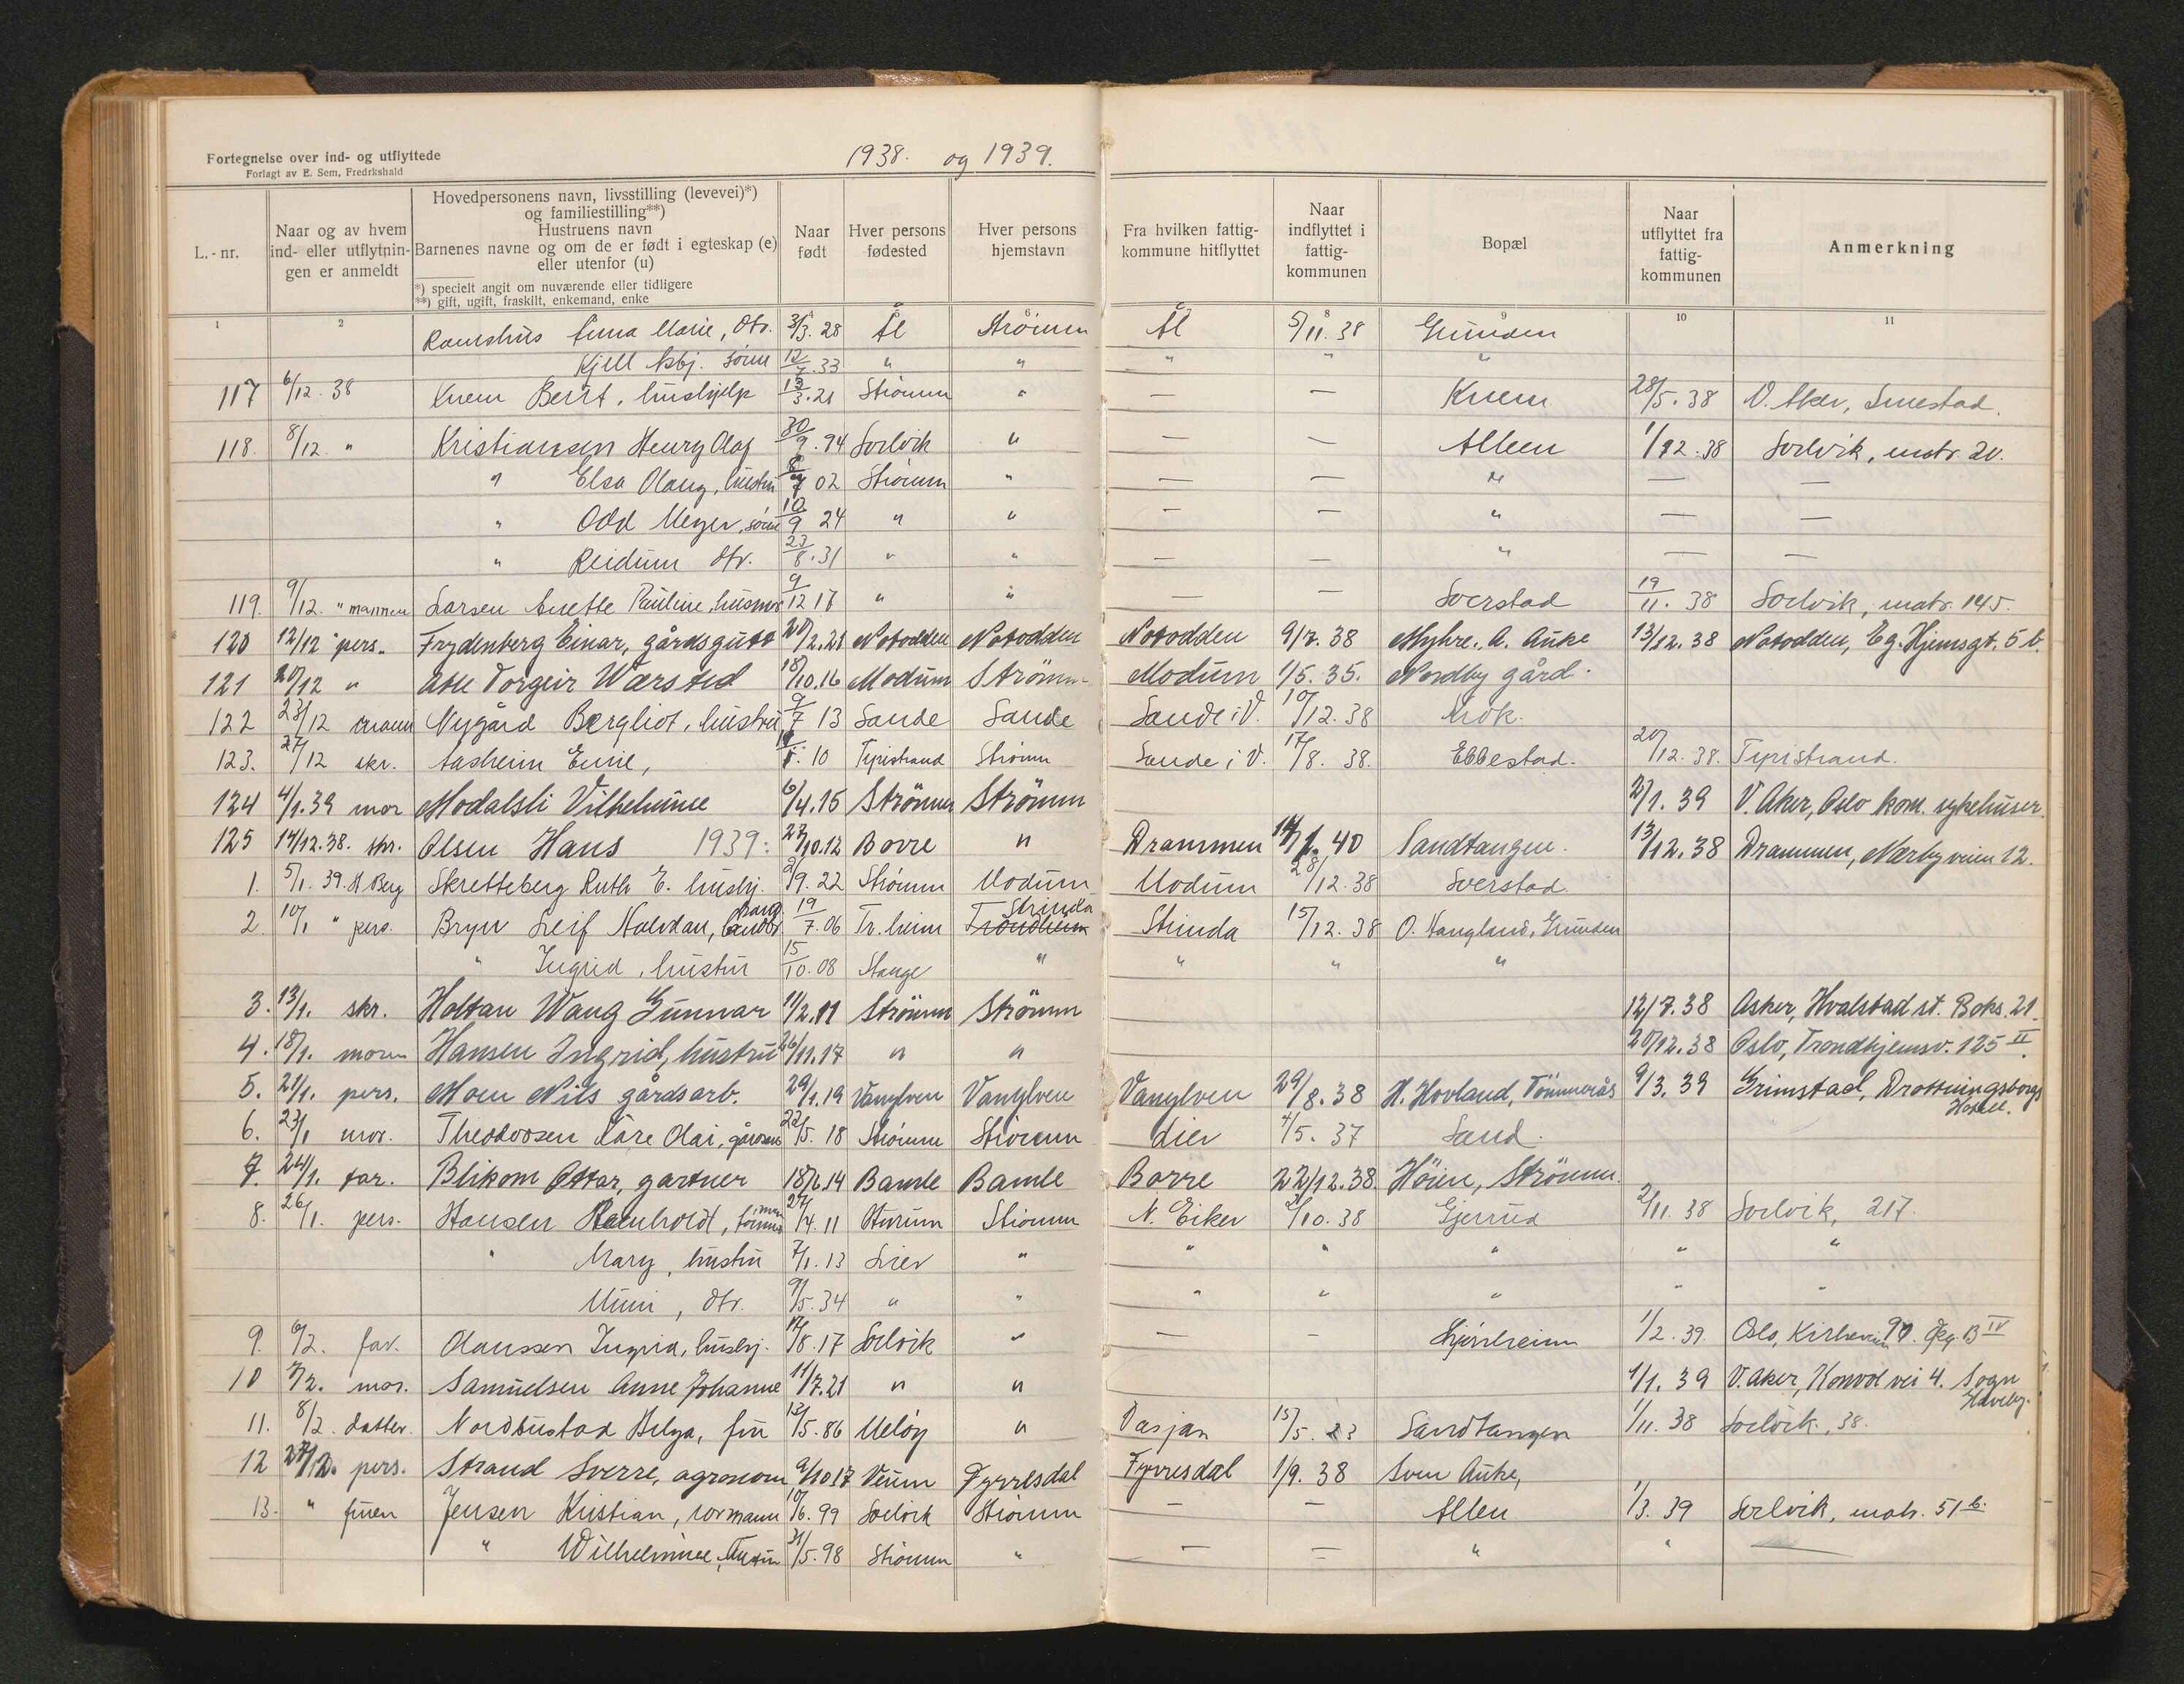 Fortegnelse over ind- og utflyttede
Forlagt av E. Sem, Fredrkshald
1938. og 1939.
L.-nr.
Naar og av hvem ind- eller utflytningen er anmeldt
Hovedpersonens navn, livsstilling (levevei)*) og familiestilling**)
Hustruens navn
Barnenes navne og om de er født i egteskap (e) eller utenfor (u)
*) specielt angit om nuværende eller tidligere
**) gift, ugift, fraskilt, enkemand, enke
Naar født
Hver persons fødested
Hver persons hjemstavn
Fra hvilken fattigkommune hitflyttet
Naar indflyttet i fattigkommunen
Bopæl
Naar utflyttet fra fattigkommunen
Anmerkning
1 2 8 9 10 11
Anna Marie, dtr. 3/3. 28 Ål Strömm Ål 5/11. 38 Grunden
Kjell Asbj. sönn 33 " " " " "
117 6/12. 38 Knem Berit, hushjelp 13/3. 21 Strömm " — — Knem 28/5. 38 V. Aker, Smestad.
118. 8/12. " Kristiansen Henry Olaf 30/9. 94 Svelvik " — — Alleen 1/12. 38 Svelvik, matr. 20.
" Elsa Olaug, hustru 02 Strömm " — — " — —
" Odd Meyer, sönn 10/9 24 " " — — " — —
" Reidun dtr. 23/8. 31 " " — — " — —
119. 9/12. " mannen Larsen Anette Pauline, husmor 9/12 17 " " — — Sverstad 19/11. 38 Svelvik, matr. 145.
120 12/12 " pers. Frydenberg Einar, gårdsgutt 20/2. 21 Notodden Notodden Notodden 9/7. 38 Myhre, A. Auke 13/12. 38 Notodden, Eg. Hjemsgt. 5 b.
121 20/12 " Torgeir Wærsted 18/10. 16 Modum Strömm Modum 1/5. 35. Nordby gård.
122 23/12 mann Nygård Bergliot, hustru 9/7 13 Sande Sande Sande i V. 10/12. 38 Krok.
123. 27/12 skr. Aasheim Emie, 10 Tyristrand Strömm Sande i V. 17/8. 38. Ebbestad. 20/12. 38. Tyristrand.
124 4/1. 39 mor Modalsli Vilhelmine 6/4. 15 Strömm Strömm 2/1. 39 V. Aker, Oslo kom. sykehuser.
125 14/12. 38. skr. Olsen Hans 1939: 27/10. 12 Borre " Drammen 40 Sandtangen. 13/12. 38 Drammen, Nærbyveien 12.
1. 5/1. 39. H. Berg Skretteberg Ruth E. hushj. 9/9. 22 Strömm Modum Modum 28/12. 38 Sverstad.
2. 10/1 " pers. Bryn Leif Halvdan, 19/7. 06 Tr. heim Trondheim Strinda Strinda 15/12. 38 O. Haugland, Grunden
" Ingrid, hustru 15/10. 08 Stange " " " "
3. 13/1. skr. Holtan Wang Gunnar 11/2. 11 Strömm Strömm 12/7. 38 Asker, Hvalstad st. Boks. 21.
4. 18/1. moren Hansen Ingrid, hustru 26/11. 17 " " 20/12. 38 Oslo, Trondhjemsv. 125 II.
5. 21/1. pers. Moen Nils gårdsarb. 29/1. 19 Vanylven Vanylven Vanylven 29/8. 38 H. Hovland, Tömmerås 9/3. 39 Grimstad, Drottningsborgs Hotell.
6. 23/1 mor. Theodorsen Kåre Olai, 22/5. 18 Strömm Strömm Lier 1/5. 37 Sand.
7. 24/1. far. Blikom Ottar, gartner 18/6. 14 Bamle Bamle Borre 22/12. 38. Höien, Strömm.
8. 26/1. pers. Hansen Reinholdt, 27/4. 11 Hurum Strömm N. Eiker /10. 38 Gjerrud 2/11. 38 Svelvik, 217.
" Mary, hustru 7/1. 13 Lier " " " " " "
Unni, dtr. 9/5. 34 " " " " " " "
9. 6/2. far. Olaussen Ingrid, hushj. 17/8. 17 Svelvik " — — 1/2. 39. Oslo, Kirkeveien 90. Opg. B IV
10 7/2. mor. Samuelsen Anne Johanne 11/7. 21 " " 1/1. 39 V. Aker, Konvol vei 4. Sogn Haveby.
11. 8/2. datter. Nordbustad Helga, fru 13/5. 86 Melöy " Vasjan 15/5. 23 Sandtangen 1/11. 38 Svelvik, 38.
12 27/2. pers. Strand Sverre, agronom 9/10 17 Veum Fyrresdal Fyrresdal 1/9. 38 Sven Auke,
13. " fruen Jensen Kristian, rormann 10/6. 99 Svelvik Strömm — — Alleen 1/3. 39 Svelvik, matr. 51 b.
" Wilhelmine, hustru 31/5. 98 Strömm " — — " "